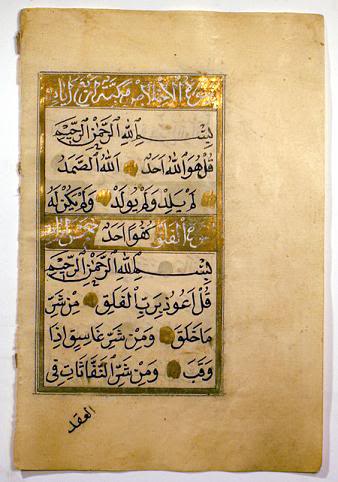 سورة الاخلاص مكية اربع اياة
بِسْمِ اللهِ الرَّحْمٰنِ الرَّحِيْمِ
قُلْ هُوَ اللهُ اَحَدٌ اَللهُ الصَّمَدُ
لَمْ يَلِدْ وَلَمْ يُولَدْ وَلَمْ يَكُنْ لَهُ
سورة الفلق كُفُوًا اَحَدٌ خمس
بِسْمِ اللهِ الرَّحْمٰنِ الرَّحِيْمِ
قُلْ اَعُوذُ بِرَبِّ الْفَلَقِ مِنْ شَرِّ
مَا خَلَقَ وَمِنْ شَرِّ غَاسِقٍ اِذَا
وَقَبَ وَمِنْ شَرِّ النَّفَّاثَاتِ فِى
العقد